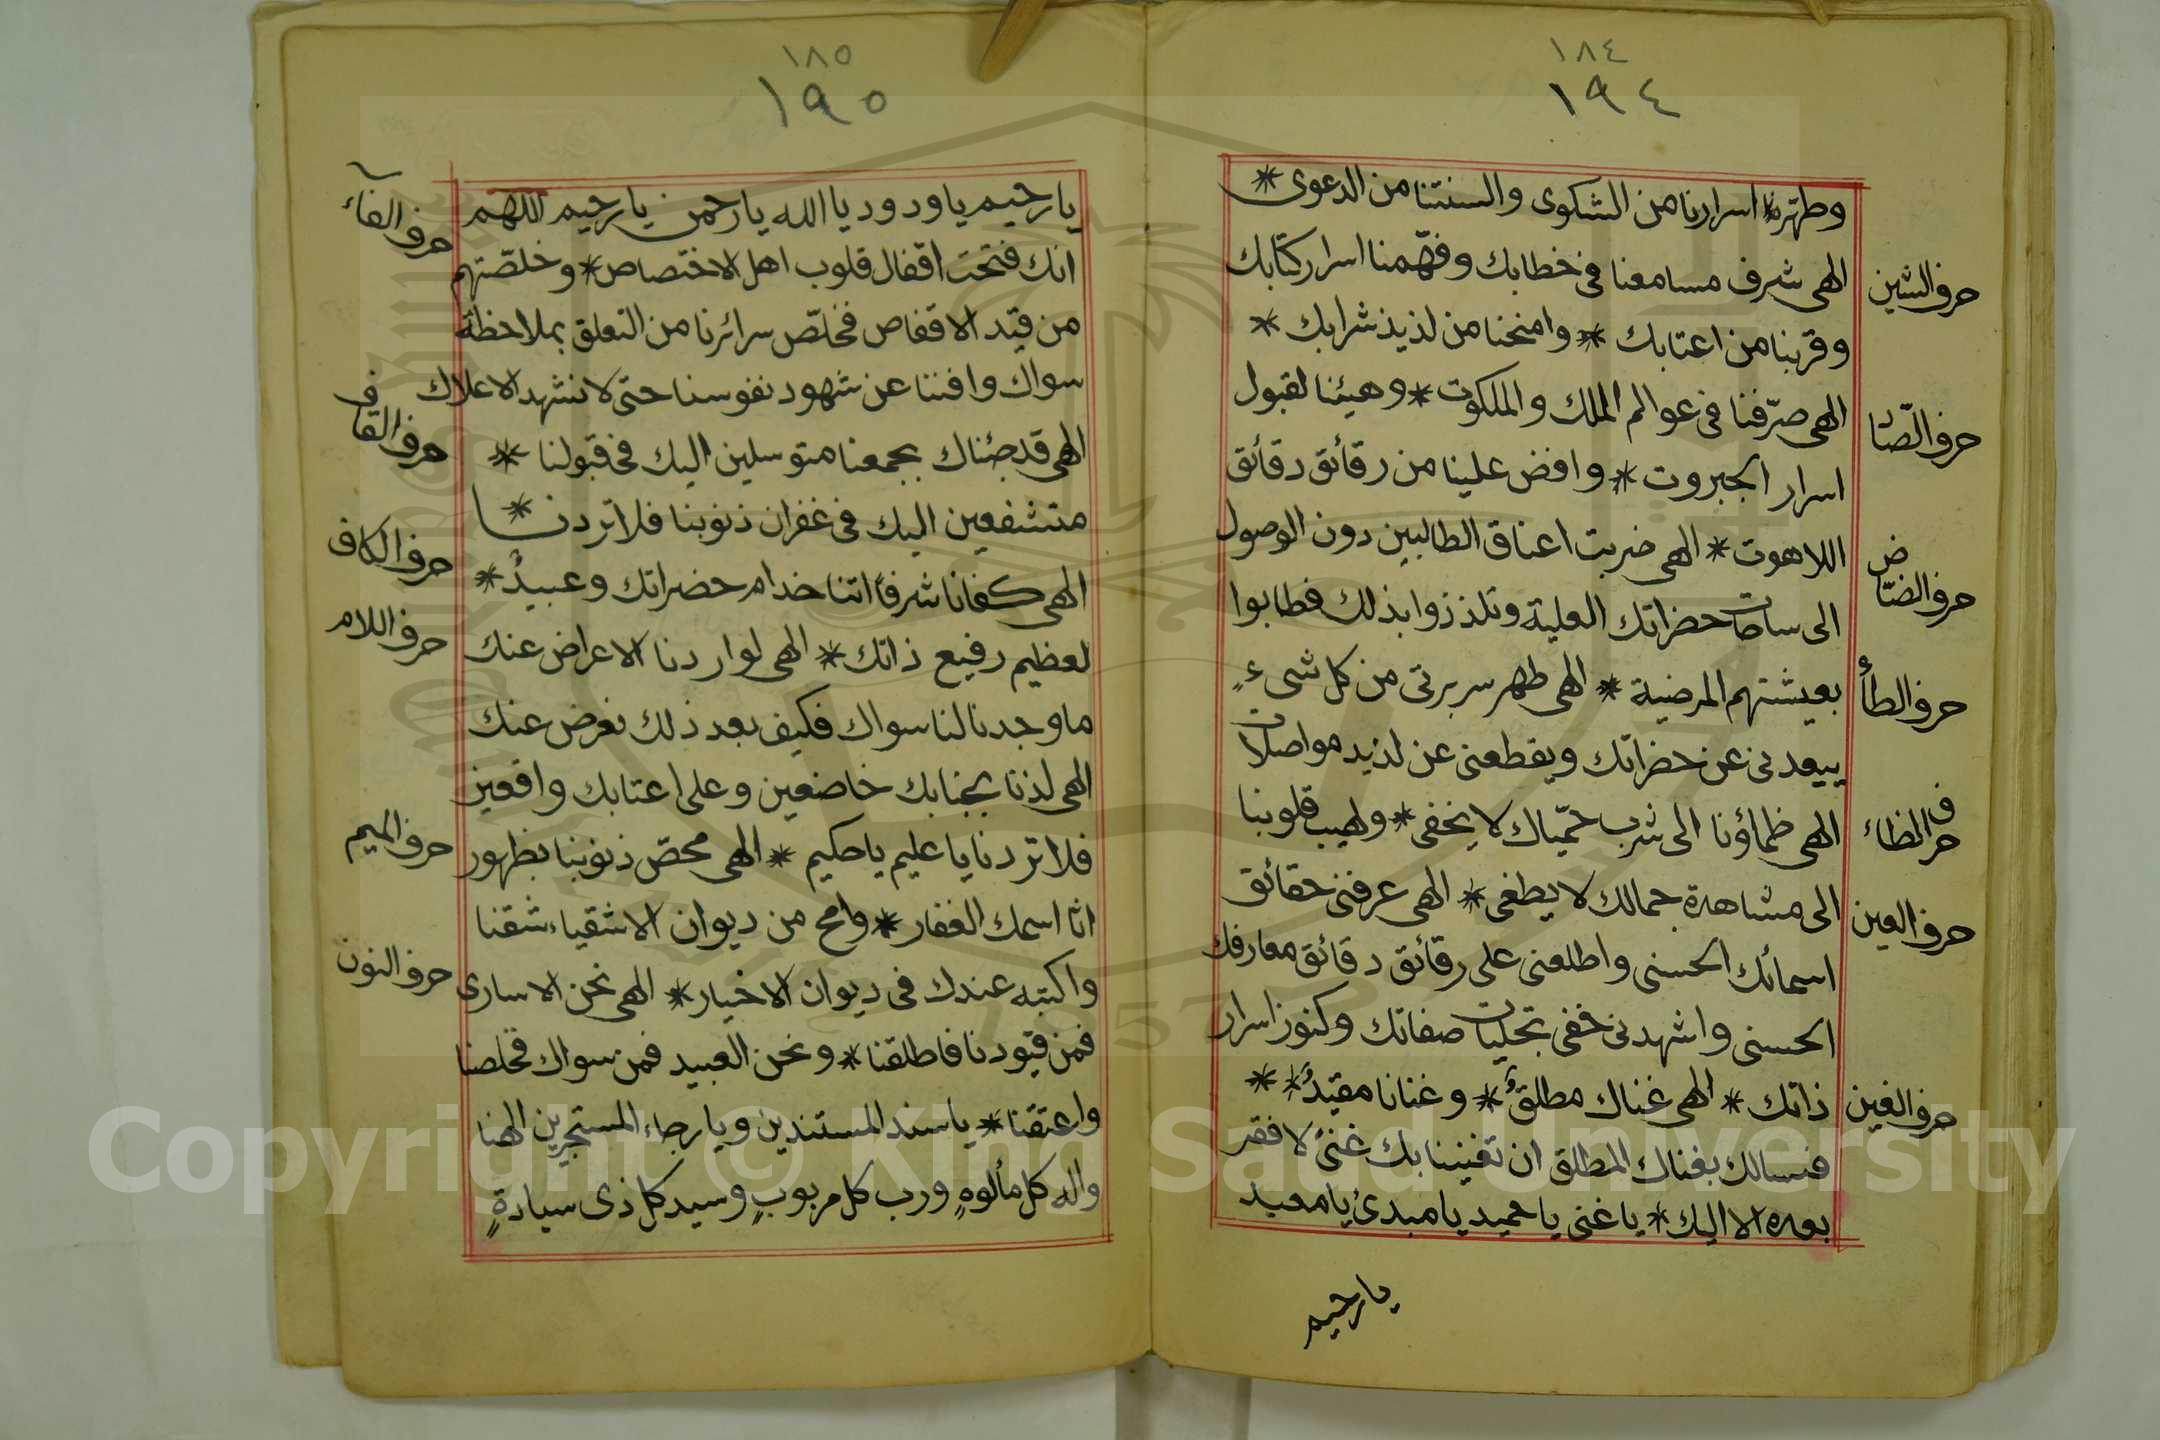 ١٨٤
١٩٤
وطهر اسرارنا من الشكوى والسنتنا من الدعوى *
حرف الشين
الهى شرف مسامعنا فى خطابك وفهّمنا اسرار كتابك
وقربنا من اعتابك * وامنحنا من لذيذ شرابك *
حرف الصّاد
الهى صرّفنا فى عوالم الملك والملكوت * وهيئنا لقبول
اسرار الجبروت * وافض علينا من رقائق دقائق
اللاهوت * الهى ضربت اعناق الطالبين دون الوصول
حرف الضّاض
الى ساحات حضراتك العلية وتلذذوا بذلك فطابوا
بعيشتهم المرضية * الهى طهر سريرتى من كل شىءٍ
حرف الطأ
يبعدنى عن حضراتك ويقطعنى عن لذيذ مواصلات
حرف الظاء
الهى ظماؤنا الى شرب حميّاك لا يخفى * ولهيب قلوبنا
الى مشاهدة جمالك لا يطفى * الهى عرفنى حقائق
حرف العين
اسمائك الحسنى واطلعنى على رقائق دقائق معارفك
الحسنى واشهدنى خفى تجليات صفاتك وكنوز اسرار
ذاتك * الهى غناك مطلقٌ * وغنانا مقيّدٌ *
حرف الغين
فنسالك بغناك المطلق ان تغنينا بك غنىً لا فقر
بعده الا اليك * يا غنى يا حميد يا مبدئ يا معيد
يا رحيم
١٨٥
١٩٥
يا رحيم يا ودود يا الله يا رحمن يا رحيم اللهم
حرف الفآء
انك فتحت اقفال قلوب اهل الاختصاص * وخلصّتهم
من قيد الاقفاص فخلصّ سرائرنا من التعلق بملاحظة
سواك وافننا عن شهود نفوسنا حتى لا نشهد الا علاك
حرف القاف
الهى قد جئناك بجمعنا متوسلين اليك فى قبولنا *
متشفعين اليك فى غفران ذنوبنا فلا تردنا *
حرف الكاف
الهى كفانا شرفاً اننا خدام حضراتك وعبيدٌ *
لعظيم رفيع ذاتك * الهى لو اردنا الاعراض عنك
حرف اللام
ما وجدنا لنا سواك فكيف بعد ذلك نعرض عنك
الهى لذنا بجنابك خاضعين وعلى اعتابك واقعين
فلا تردنا يا عليم يا حكيم * الهى محصّ ذنوبنا بظهور
حرف الميم
اثا اسمك الغفار * وامح من ديوان الاشقياء شقنا
واكتبه عندك فى ديوان الاخيار * الهى نحن الاسارى
حرف النون
فمن قيودنا فاطلقنا * ونحن العبيد فمن سواك فخلصنا
واعتقنا * يا سند المستندين ويا رجاء المستجيرين الهنا
واله كل مألوهٍ ورب كل مربوبٍ وسيد كل ذى سيادةٍ
Copyright © King Saud University